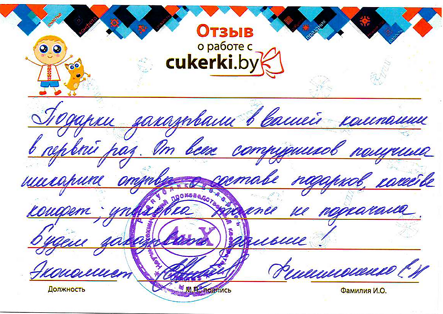 Отзыв
о работе с
cukerki.by
Подарки заказывали в Вашей компании
в первый раз. От всех сотрудников получила
шикарные отзывы о составе подарков, качестве
конфет, упаковка также не подкачала.
Будем заказывать дальше!
Экономист
Должность
подпись
Фамилия И.О.